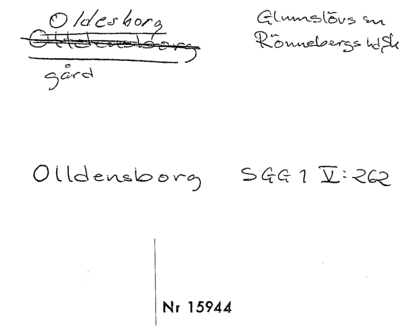 Oldesborg
Olldensborg
gård
Glumslövs sn
Rönnebergs hd, Sk
Olldensborg SGG 1 V:262
Nr 15944